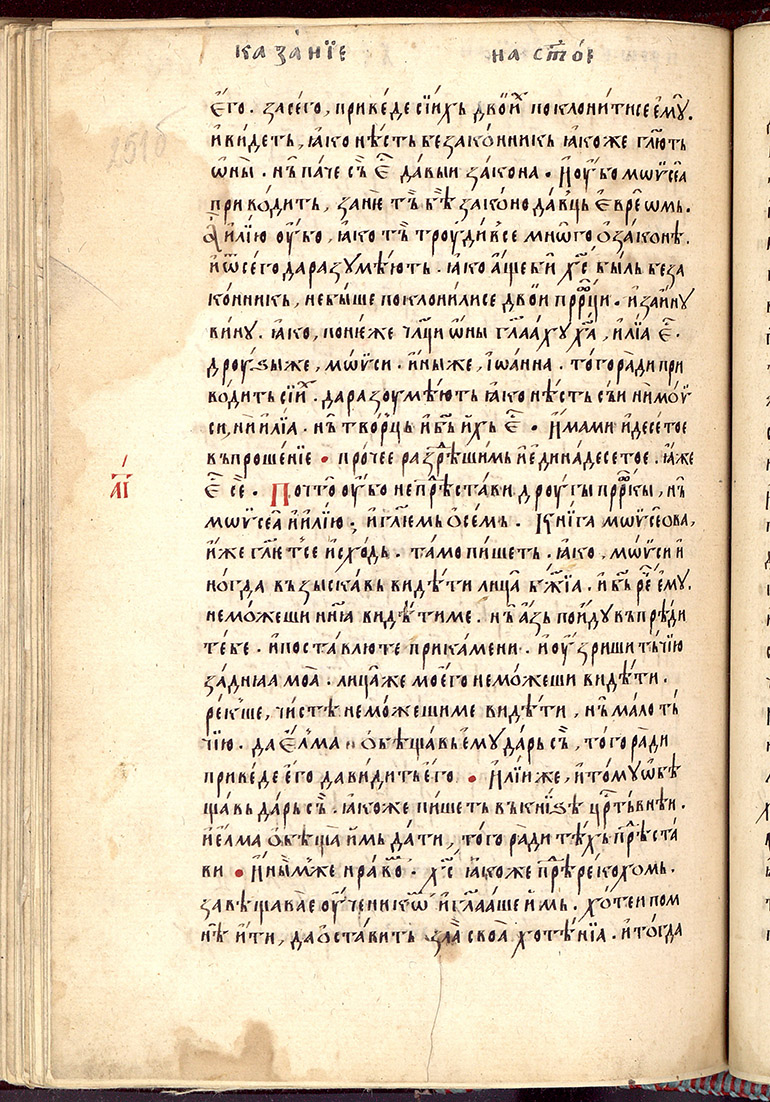 каза́нїе на ст҃о́е
є҆го̀. за сего̀, приведе сїи́хь двои̑ покло́нити се є҆мꙋ̀.
и҆ ви́деть, ꙗ҆ко нѣ́сть беззако́нникь ꙗ҆коже гл҃ють
ѡ҆ны̀. нь̀ па́че сь̀ є҆҃ да́выи зако́на. И҆ ᲂу҆́бо мѡѷсе́а
приво́дить, зане́ тъ̀ бѣ̀ законода́вць є҆вре́ѡмь.
и҆лїю ᲂу҆́бо, ꙗ҆ко тъ̀ троуди́в се мнѡ́го ѡ҆ зако́нѣ.
и҆ ѿ сего̀ да разꙋмѣ́ють. ꙗ҆ко а҆́ще бы̀ х҃с бы́ль безза
ко́нникь, не бы́ше поклони́ли се дво́и прⷪ҇рци. и҆ за и҆́нꙋ
винꙋ̀. ꙗ҆ко, поне́же чл҃ци ѡ҆ны гл҃аахꙋ х҃а, и҆лїа є҆҃.
дроу́ѕыже, мѡѷси. и҆ны́же, і҆ѡа́нна. того̀ ра́ди при
во́дить сїи̑. да разоумѣ́ють ꙗ҆ко нѣ́сть съи ни мо́ѷ
си, ни и҆лїа. нь̀ тво́рць и҆ б҃ь и҆́хь є҆҃. И҆́мамы и҆ десе́тое
въпроше́нїе. про́чее разрѣши́мь и҆ є҆динадесе́тое. ꙗ҆же
а҃і
є҆҃ сѐ. Почто̀ ᲂу҆́бо не прѣ́стави дроугы прⷪ҇рокы, нь̀
мѡѷсе́а и҆ и҆лїю; и҆ гл҃ємь ѡ҆ се́мь. Кни́га мѡѷсе́ова,
и҆́же гл҃ет се и҆схо́дь. та́мо пи́шеть. ꙗ҆ко, мѡѷси и҆
ногда възы́скавь ви́дѣти лица̀ бж҃їа. и҆ б҃ь рⷱ҇е є҆мꙋ̀.
не мо́жеши нн҃ꙗ ви́дѣти ме. нь̀ а҆́зь по́йдꙋ въпрѣ́ди
те́бе. и҆ поста́влю те при ка́мени. и҆ ᲂу҆́зриши ть́чїю
за́днаа моа̀. лица́же моего̀ не мо́жеши ви́дѣти.
ре́кше, чи́стѣ не мо́жеши ме ви́дѣти, нь̀ ма́ло ть
чїю. да є҆лма ѡ҆бѣща́вь є҆мꙋ да́рь сь̀, того̀ ра́ди
приве́де є҆го да ви́дить є҆го̀. И҆лїи же, и҆ томꙋ ѡ҆бѣ
ща́вь да́рь сь̀. ꙗ҆коже пи́шеть въ кни́ѕѣ црⷭ҇твнѣи.
и҆ є҆лма ѡ҆бѣща̀ и҆мь да́ти, того̀ ра́ди тѣ́хь прѣ́ста
ви. И҆ны́мже нра́вом. х҃с ꙗ҆коже прѣ́реко́хомь.
завѣщава́е ᲂу҆ченикѡⷨ и҆ гл҃ааше и҆мь. хо́теи по м
нѣ̀ и҆тѝ, да ѡ҆ста́вить зла̀ своа̀ хотѣ́нїа. и҆ тогда